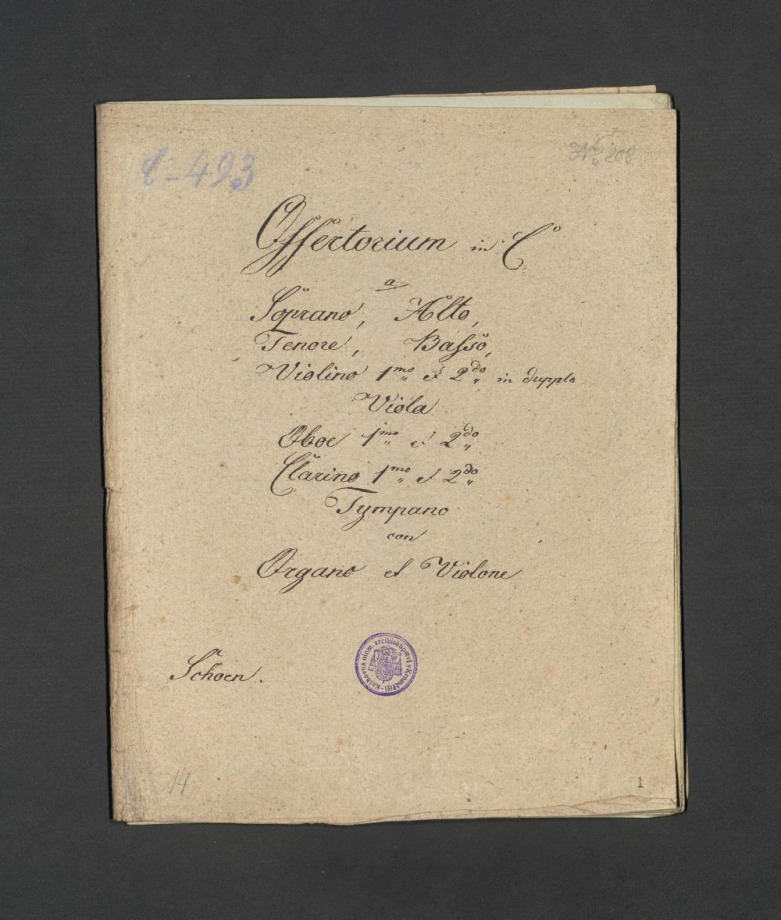 C-493
No 208
Offertorium in C
a
Soprano, Alto,
Tenore, Basso,
Violino 1mo et 2do in dupplo
Viola
Oboe 1mo et 2do
Clarino 1mo et 2do
Tympano
con
Organo et Violone
Knihovna olom. arcibiskupství v Kroměříži
Schoen.
14
1